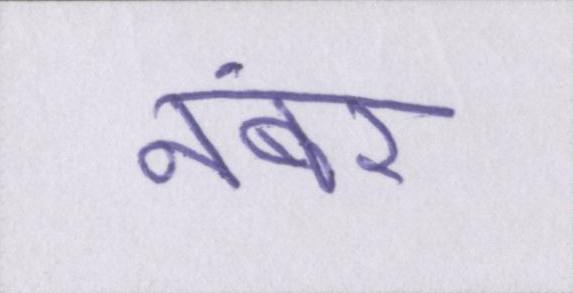 नंबर